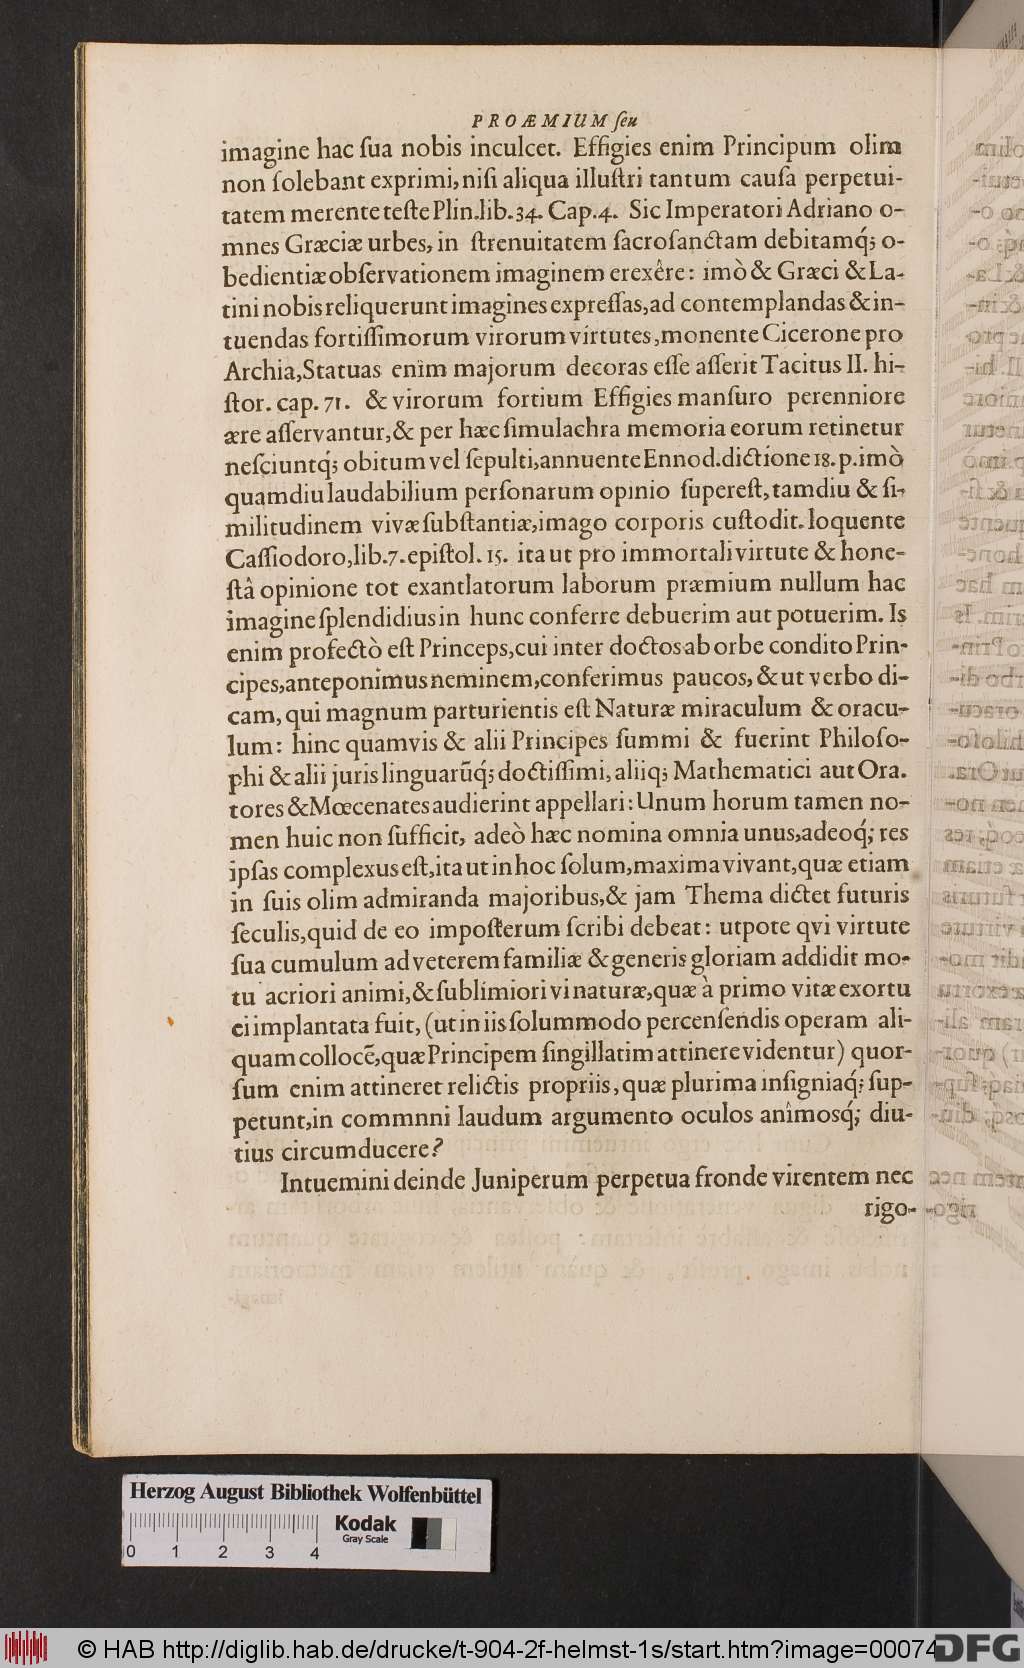 PROÆMIUM ſeu
imagine hac ſua nobis inculcet. Effigies enim Principum olim
non ſolebant exprimi, niſi aliqua illuſtri tantum cauſa perpetui-
tatem merente teſte Plin. lib. 34. Cap. 4. Sic Imperatori Adriano o-
mnes Græciæ urbes, in ſtrenuitatem ſacroſanctam debitamq́; o-
bedientiæ obſervationem imaginem erexêre: imò & Græci & La-
tini nobis reliquerunt imagines expreſſas, ad contemplandas & in-
tuendas fortiſſimorum virorum virtutes, monente Cicerone pro
Archia, Statuas enim majorum decoras eſſe aſſerit Tacitus II. hi-
ſtor. cap. 71. & virorum fortium Effigies manſuro perenniore
ære aſſervantur, & per hæc ſimulachra memoria eorum retinetur
neſciuntq́; obitum vel ſepulti, annuente Ennod. dictione 18. p. imò
quamdiu laudabilium perſonarum opinio ſupereſt, tamdiu & ſi-
militudinem vivæ ſubſtantiæ, imago corporis cuſtodit. loquente
Caſſiodoro, lib. 7. epiſtol. 15. ita ut pro immortali virtute & hone-
ſtâ opinione tot exantlatorum laborum præmium nullum hac
imagine ſplendidius in hunc conferre debuerim aut potuerim. Is
enim profectò eſt Princeps, cui inter doctos ab orbe condito Prin-
cipes, anteponimus neminem, conferimus paucos, & ut verbo di-
cam, qui magnum parturientis eſt Naturæ miraculum & oracu-
lum: hinc quamvis & alii Principes ſummi & fuerint Philoſo-
phi & alii juris linguarūq́; doctiſſimi, aliiq; Mathematici aut Ora-
tores & Mœcenates audierint appellari: Unum horum tamen no-
men huic non ſufficit, adeò hæc nomina omnia unus, adeoq́; res
ipſas complexus eſt, ita ut in hoc ſolum, maxima vivant, quæ etiam
in ſuis olim admiranda majoribus, & jam Thema dictet futuris
ſeculis, quid de eo impoſterum ſcribi debeat: utpote qvi virtute
ſua cumulum ad veterem familiæ & generis gloriam addidit mo-
tu acriori animi, & ſublimiori vi naturæ, quæ à primo vitæ exortu
ei implantata fuit, (ut in iis ſolummodo percenſendis operam ali-
quam collocē, quæ Principem ſingillatim attinere videntur) quor-
ſum enim attineret relictis propriis, quæ plurima inſigniaq́; ſup-
petunt, in commnni laudum argumento oculos animosq́; diu-
tius circumducere?
Intuemini deinde Juniperum perpetua fronde virentem nec
rigo-
Herzog August Bibliothek Wolfenbüttel
Kodak
Gray Scale
0 1 2 3 4
© HAB http://diglib.hab.de/drucke/t-904-2f-helmst-1s/start.htm?image=00074
DFG